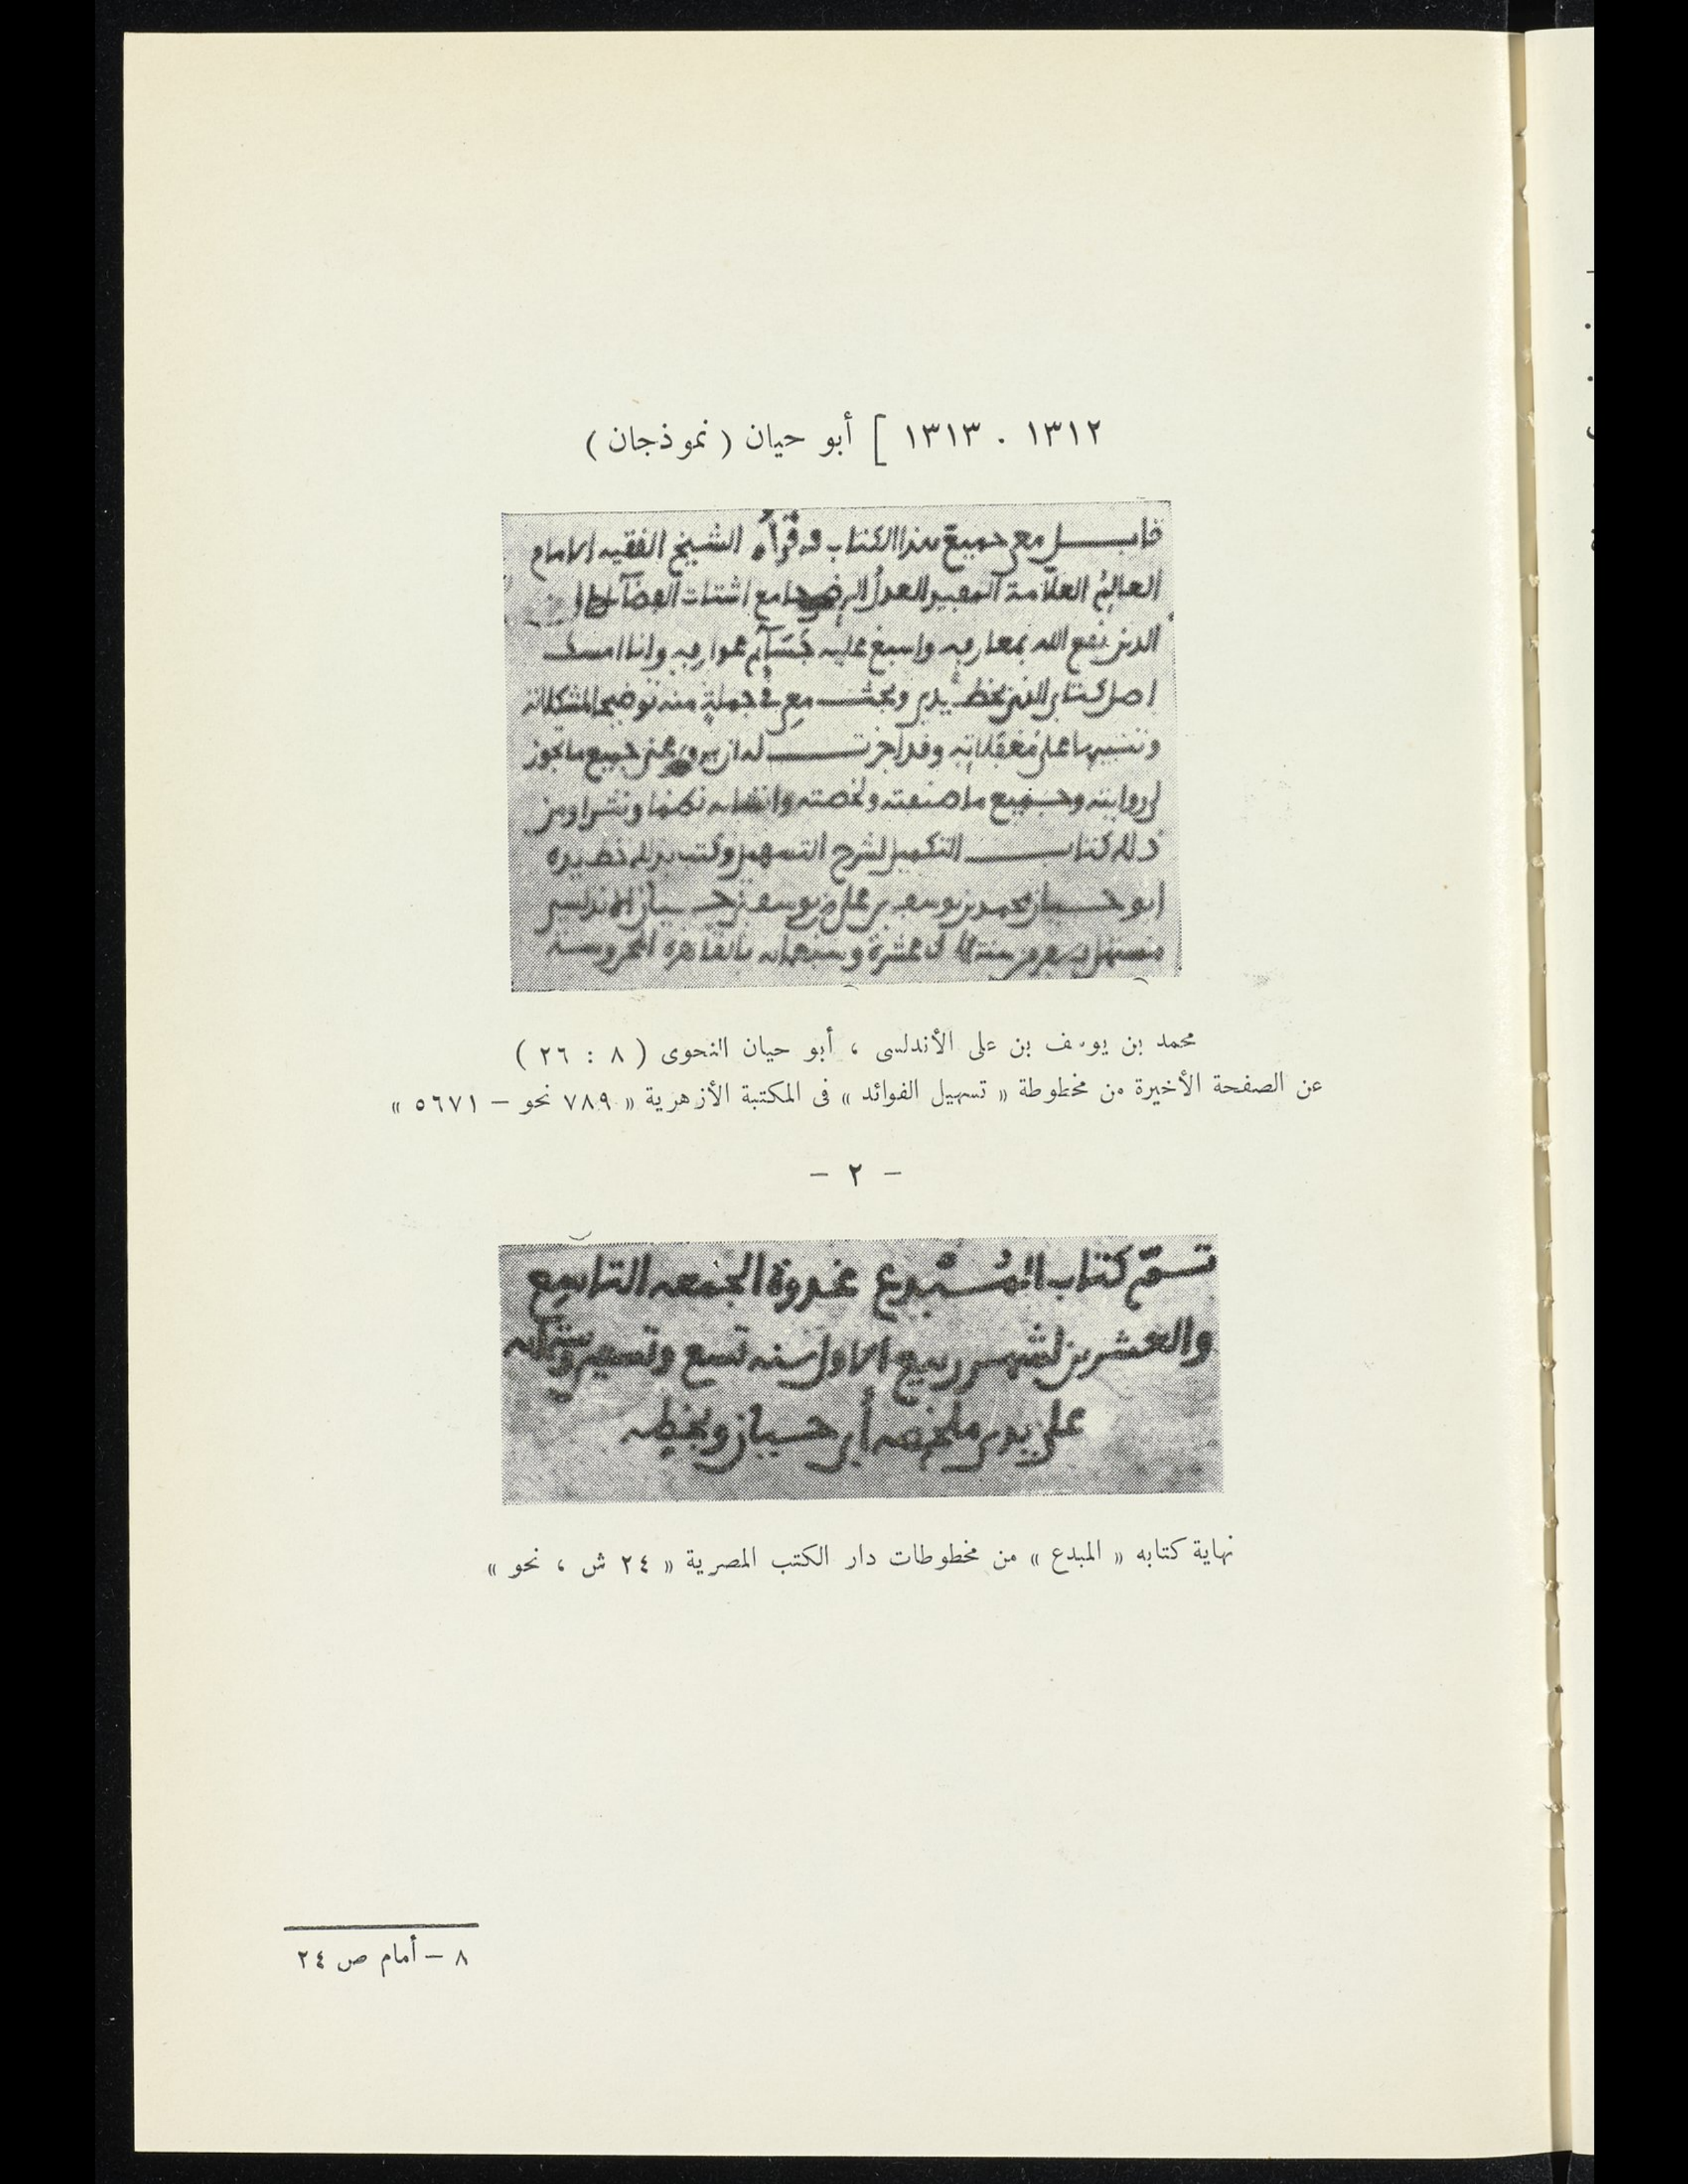 ١٣١٢ . ١٣١٣ ] أبو حيان ( نموذجان )
قابل معي جميع هذا الكتاب في قرأه الشيخ الفقيه الامام
العالم العلامة المفيد العدل الرضي جامع اشتات الفضائل
الدين نفع الله بمعارفه واسبغ عليه عوارفه وانا امسك
اصل كتابي الذي بخط يدي وبحث معي في جملة منه توضيحا لمشكلاته
وتنبيها على مغفلاته وقد اجزت له ان يروي عني جميع ما يجوز
لي روايته وجميع ما صنفته ولخصته وانشأته نظما ونثرا ومن
ذلك كتاب التكميل لشرح التسهيل وكتب بذلك خط يده
ابو حيان محمد بن يوسف بن علي بن يوسف بن حيان الاندلسي
سنة عشرة وسبعمائه بالقاهرة المحروسة
محمد بن يوسف بن على الأندلسى ، أبو حيان النحوى ( ٨ : ٢٦ )
عن الصفحة الأخيرة من مخطوطة « تسهيل الفوائد » فى المكتبة الأزهرية « ٧٨٩ نحو – ٥٦٧١ »
– ٢ –
تم كتاب المبدع غدوة الجمعه التاسع
والعشرين لشهر ربيع الاول سنه تسع وتسعين وستمائه
على يدي ملخصه أبي حيان وبخطه
نهاية كتابه « المبدع » من مخطوطات دار الكتب المصرية « ٢٤ ش ، نحو »
٨ – أمام ص ٢٤